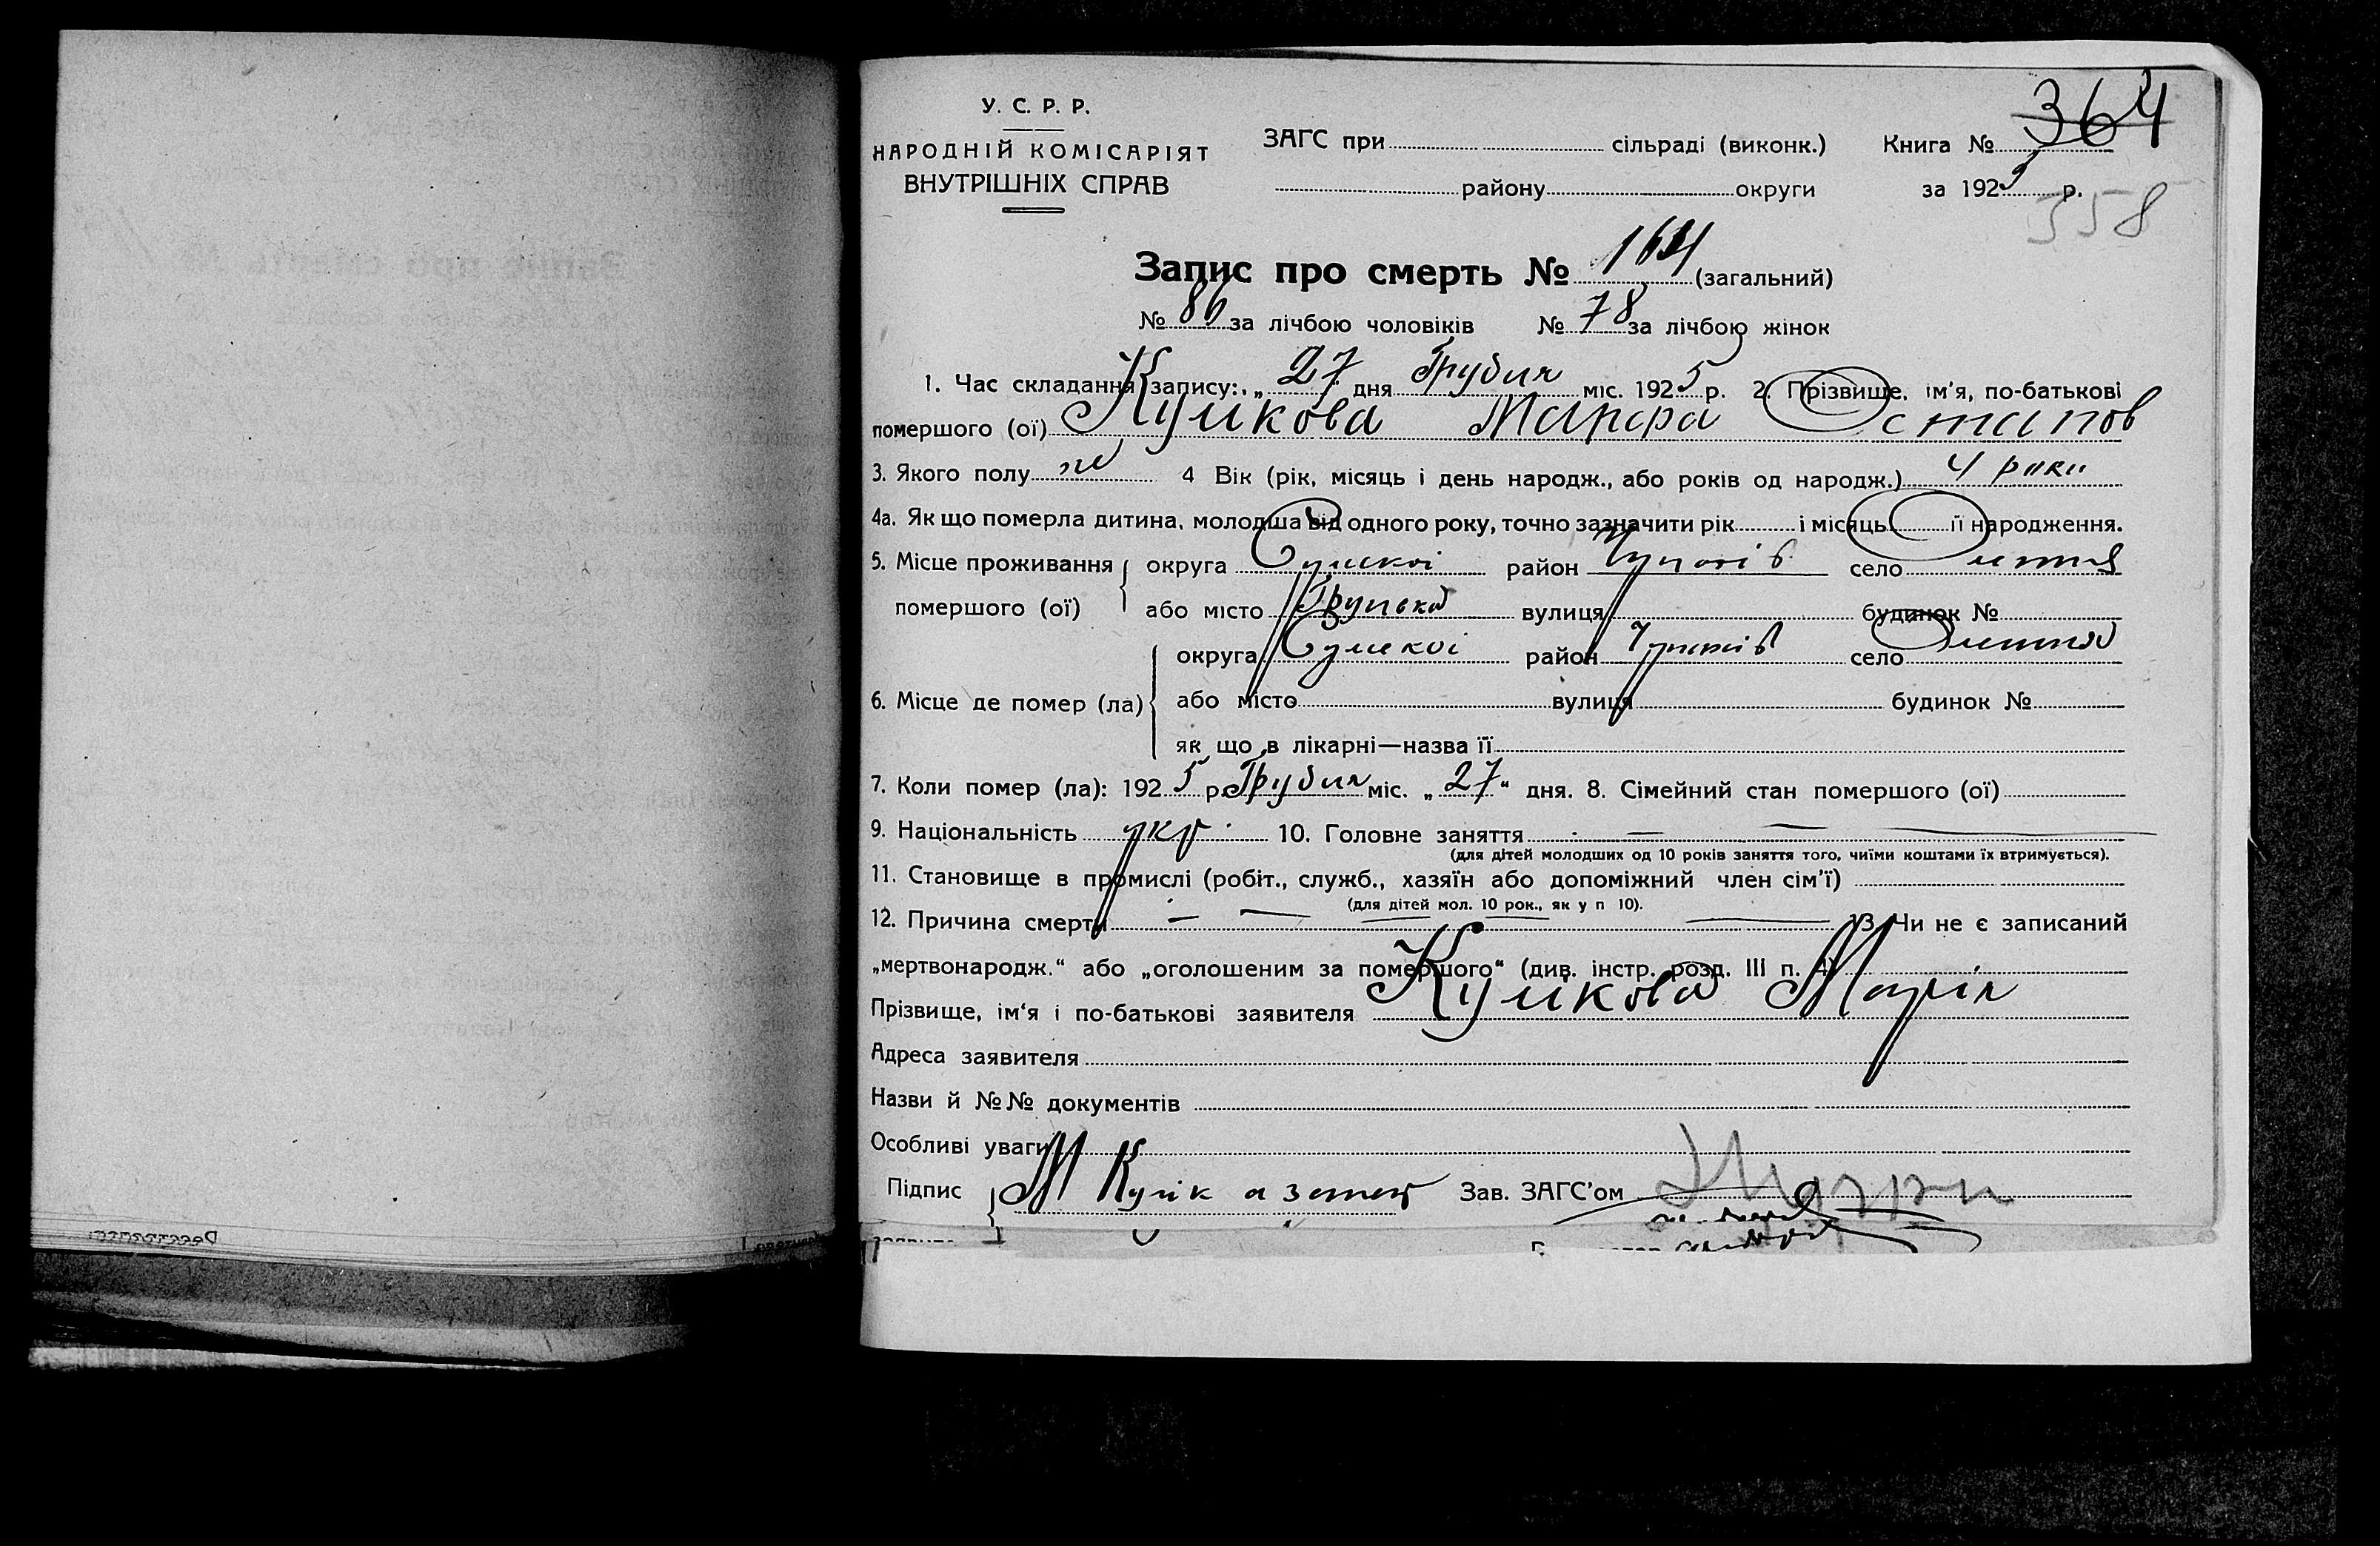 364
У. С. Р. Р.
НАРОДНІЙ КОМІСАРІЯТ
ВНУТРІШНІХ СПРАВ
ЗАГС при сільраді (виконк.) Книга №
району округи за 1925 р.
358
Запис про смерть № 164 (загальний)
№ 86 за лічбою чоловіків № 78 за лічбою жінок
1. Час складання запису: „ 27 дня Грудня міс. 1925 р. 2. Прізвище, ім'я, по-батькові
помершого (ої) Куликова Остапов
3. Якого полу ж 4 Вік (рік, місяць і день народж., або років од народж.) 4 роки
4а. Як що померла дитина, молодша від одного року, точно зазначити рік і місяць її народження.
5. Місце проживання округа Сумскої район село
помершого (ої) або місто вулиця будинок №
округа Сумскої район село
6. Місце де помер (ла) або місто вулиця будинок №
як що в лікарні—назва її
7. Коли помер (ла): 1925 р. Грудня міс. „ 27 “ дня. 8. Сімейний стан помершого (ої)
9. Національність укр. 10. Головне заняття
(для дітей молодших од 10 років заняття того, чиїми коштами їх втримується).
11. Становище в промислі (робіт., служб., хазяїн або допоміжний член сім'ї)
(для дітей мол. 10 рок., як у п 10).
12. Причина смерти 13. Чи не є записаний
„мертвонародж.“ або „оголошеним за помершого“ (див. інстр. розд. III п. 4)
Прізвище, ім'я і по-батькові заявителя Куликова Марія
Адреса заявителя
Назви й №№ документів
Особливі уваги
Підпис М Кулік Зав. ЗАГС'ом